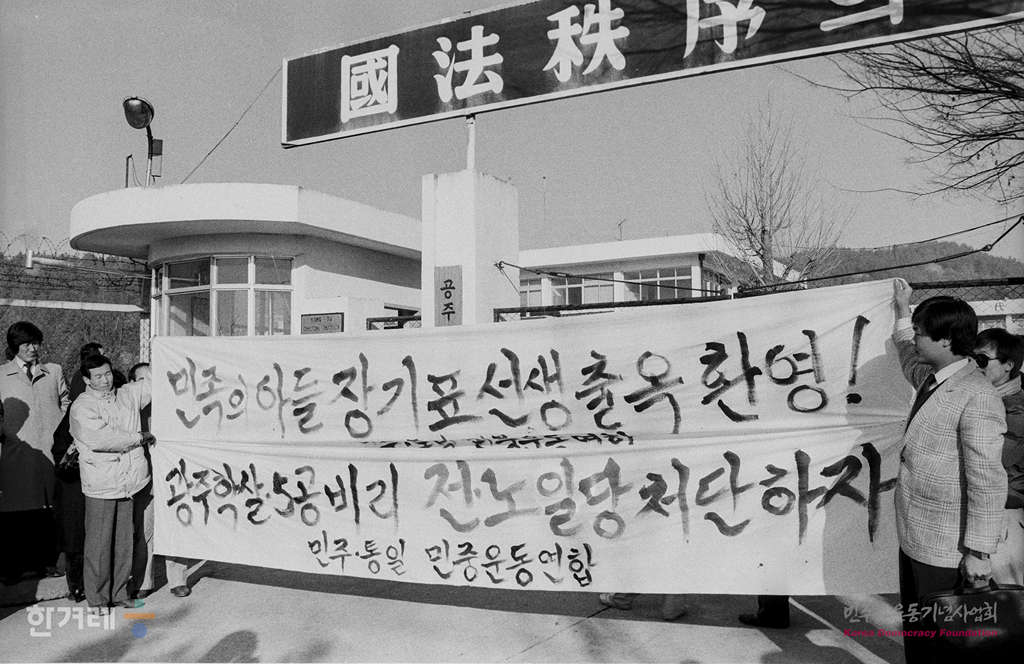 國法秩序의
공주
민족의 아들 장기표 선생 출옥 환영!
광주학살·5공비리 전·노일당 처단하자
민주·통일 민중운동연합
한겨레
기념사업회
Korea Democracy Foundation